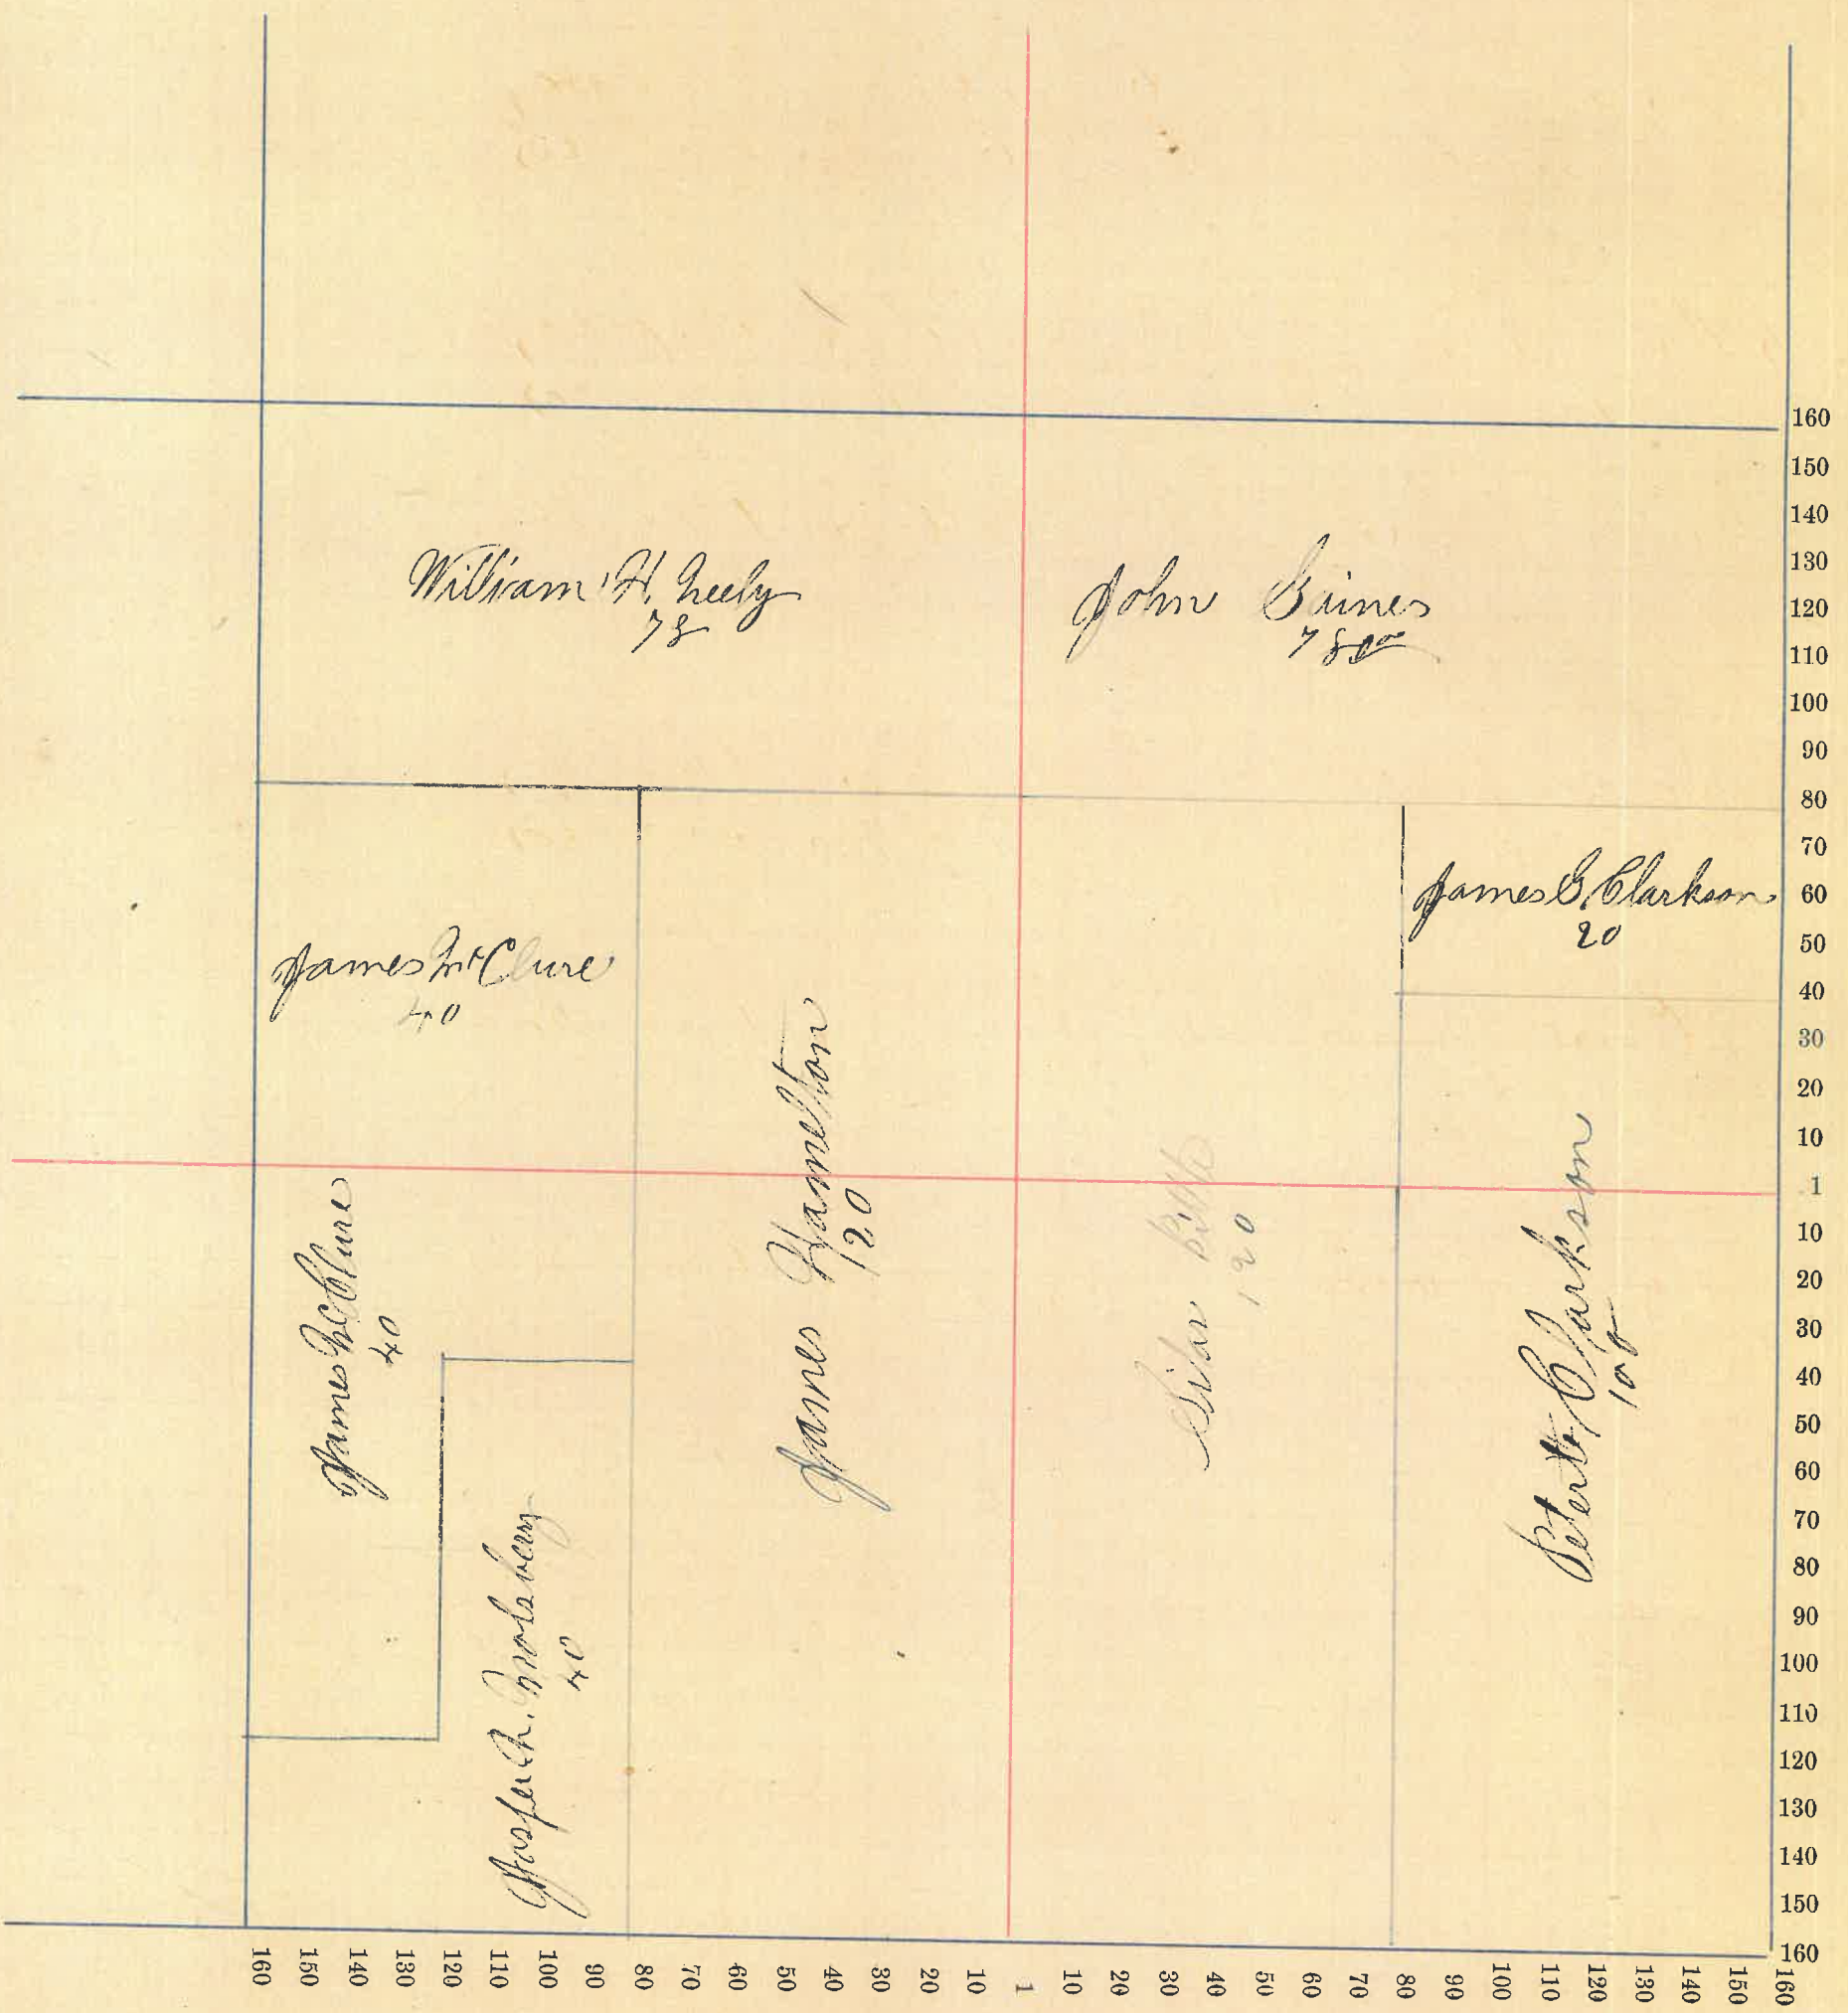 William H. Neely
78
John Gaines
78
James McClure
40
James G Clarkson
20
James McClure
40
James Hamelton
120
Silas
120
Peter Clarkson
100
40
160
150
140
130
120
110
100
90
80
70
60
50
40
30
20
10
1
10
20
30
40
50
60
70
80
90
100
110
120
130
140
150
160
160
150
140
130
120
110
100
90
80
70
60
50
40
30
20
10
1
10
20
30
40
50
60
70
80
90
100
110
120
130
140
150
160